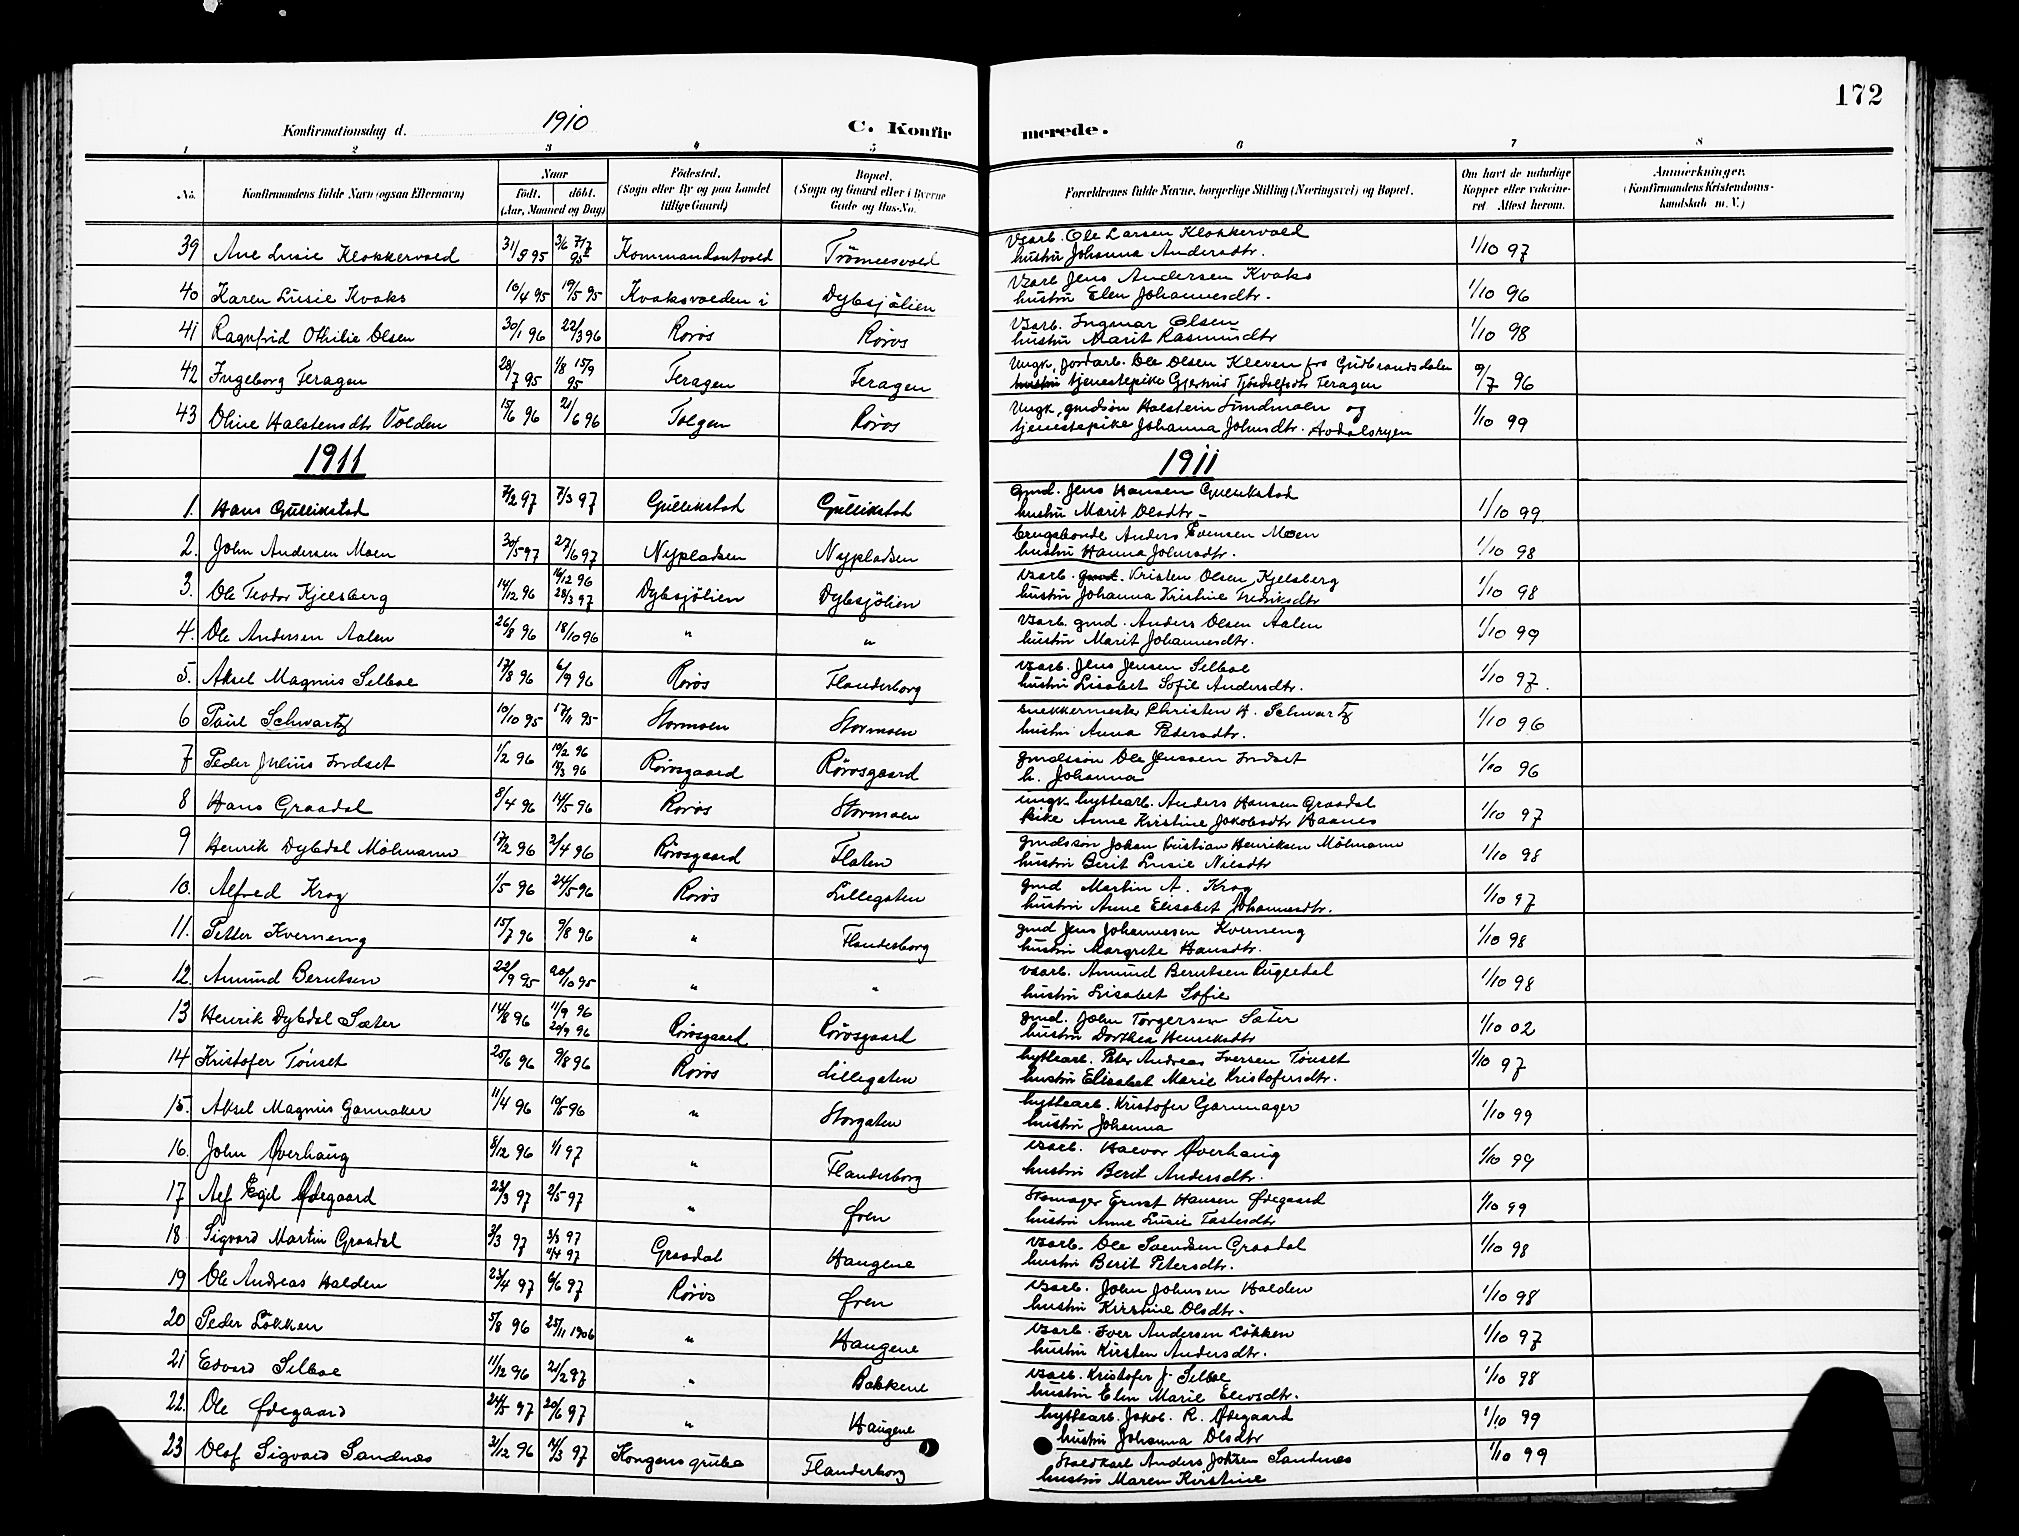 172
Konfirmationsdag d. 1910 C. Konfirmerede.
1 2 3 4 5 6 7 8
No. Konfirmandens fulde Navn (ogsaa Efternavn) Naar født. døbt. (Aar, Maaned og Dag) Fødested. (Sogn eller By og paa Landet tillige Gaard) Bopæl. (Sogn og Gaard eller i Byerne Gade og Hus-No. Forældrenes fulde Navne, borgerlige Stilling (Næringsvei) og Bopæl. Om havt de naturlige Kopper eller vakcineret Attest herom. Anmærkninger. (Konfirmandens Kristendomskundskab m. V.)
39 Ane Lusie Klokkervold 31/5 95 3/6 7/7 95 Kommandantvold Trömesvold Vzarb. Ole Larsen Klokkervold 1/10 97
hustru Johanna Andersdtr.
40 Karen Lusie Kvaks 10/4 95 19/5 95 Kvaksvolden i Dybsjölien Vzarb Jens Andersen Kvaks 1/10 96
hustru Elen Johannesdtr.
41 Ragnfrid Othilie Olsen 30/1 96 22/3 96 Røros Røros Vzarb. Ingmar Olsen 1/10 98
hustru Marit Rasmusdtr
42 Ingeborg Feragen 28/7 95 1/8 15/9 95 Feragen Feragen Ungk. jordarb. Ole Olsen Kleven fra Gudbrandsdalen 9/7 96
hustru tjenestepike Gjertrud Tjöstolfsdtr Feragen
43 Oline Halstensdtr Volden 15/6 96 21/6 96 Tolgen Røros Ungk. gmdsön Halstein Sundmoen og 1/10 99
tjenestepike Johanna Johnsdtr. Aodalsryen
1911 1911
1. Hans Gullikstad 7/2 97 7/3 97 Gullikstad Gullikstad Gmd. Jens Hansen Gullikstad 1/10 99
hustru Marit Olsdtr
2. John Andersen Moen 30/5 97 27/6 97 Nypladsen Nypladsen brugsbonde Anders Evensen Moen 1/10 98
hustru Hanna Johnsdtr.
3. Ole Teodor Kjelsberg 14/12 96 16/12 96 28/3 97 Dybsjölien Dybsjölien Vzarb. gmd. Kristen Olsen Kjelsberg 1/10 98
hustru Johanna Kristine Fredriksdtr
4. Ole Andersen Aalen 26/8 96 18/10 96 " " Vzarb. gmd. Anders Olsen Aalen 1/10 99
hustru Marit Johannesdtr.
5. Aksel Magnus Selboe 17/8 96 6/9 96 Røros Flanderborg vzarb. Jens Jensen Selboe 1/10 97
hustru Lisabet Sofie Andersdtr.
6 Paul Schwartz 10/10 95 17/11 95 Stormoen Stormoen snekkermester Christen H. Schwartz 1/10 96
hustru Anna Pedersdtr.
7 Peder Julius Indset 1/2 96 10/2 96 15/3 96 Rørosgaard Rørosgaard gmdssön Ole Jenssen Indset 1/10 96
h. Johanna
8 Hans Graadal 8/4 96 14/5 96 Røros Stormoen ungk. hyttearb. Anders Hansen Graadal 1/10 97
pike Anne Kirstine Jakobsdtr Haanes
9 Henrik Dybdal Mølmann 17/2 96 3/4 96 Rørosgaard Flaten gmdssön Johan Kristian Henriksen Mölmann 1/10 98
hustru Berit Lusie Nilsdtr
10. Alfred Krog 1/5 96 24/5 96 Røros Lillegaten gmd Martin A. Krog 1/10 97
hustru Anne Elisabet Johannesdtr.
11. Petter Kverneng 15/7 96 9/8 96 " Flanderborg gmd Jens Johannesen Kverneng 1/10 98
hustru Margrete Hansdtr.
12. Amund Berntsen 22/9 95 20/10 95 " " vzarb. Amund Berntsen Rugledal 1/10 98
hustru Lisabet Sofie
13 Henrik Dybdal Sæter 14/8 96 11/9 96 20/9 96 Rørosgaard Rørosgaard gmd. John Torgersen Sæter 1/10 02
hustru Dorthea Henriksdtr
14 Kristofer Tønset 25/6 96 9/8 96 Røros Lillegaten hyttearb. Peter Andreas Iversen Tönset 1/10 97
hustru Elisabet Marie Kristofersdtr.
15. Aksel Magnus Garmaker 11/4 96 10/5 96 " Storgaten hyttearb. Kristofer Garmager 1/10 99
hustru Johanna
16. John Øverhaug 8/12 96 1/1 97 " Flanderborg vzarb. Halvor Øverhaug 1/10 99
hustru Berit Andersdtr.
17 Alf Egil Ødegaard 23/3 97 2/5 97 " Øren Skomager Ernst Hansen Ødegaard 1/10 99
hustru Anne Lusie Tastesdtr
18 Sigvard Martin Graadal 3/3 97 3/3 97 4/4 97 Graadal Haugene Vzarb. Ole Svendsen Graadal 1/10 98
hustru Berit Petersdtr.
19 Ole Andreas Halden 23/4 97 6/6 97 Røros Øren Vzarb. John Johnsen Halden 1/10 98
hustru Kirstine Olsdtr.
20 Peder Lökken 5/8 96 25/11 1906 " Haugene Vzarb. Iver Andersen Lökken 1/10 97
hustru Kirsten Andersdtr.
21 Edvard Selboe 11/12 96 21/2 97 " Bakkene Vzarb. Kristofer J. Selboe 1/10 98
hustru Elen Marie Elevsdtr.
22. Ole Ødegaard 24/5 97 20/6 97 " Haugene hyttearb. Jakob R. Ødegaard 1/10 99
hustru Johanna Olsdtr
23 Olaf Sigvard Sandnæs 31/12 96 7/3 97 Kongens grube Flanderborg Stoldkarl Anders Johnsen Sandnæs 1/10 99
hustru Maren Kirstine